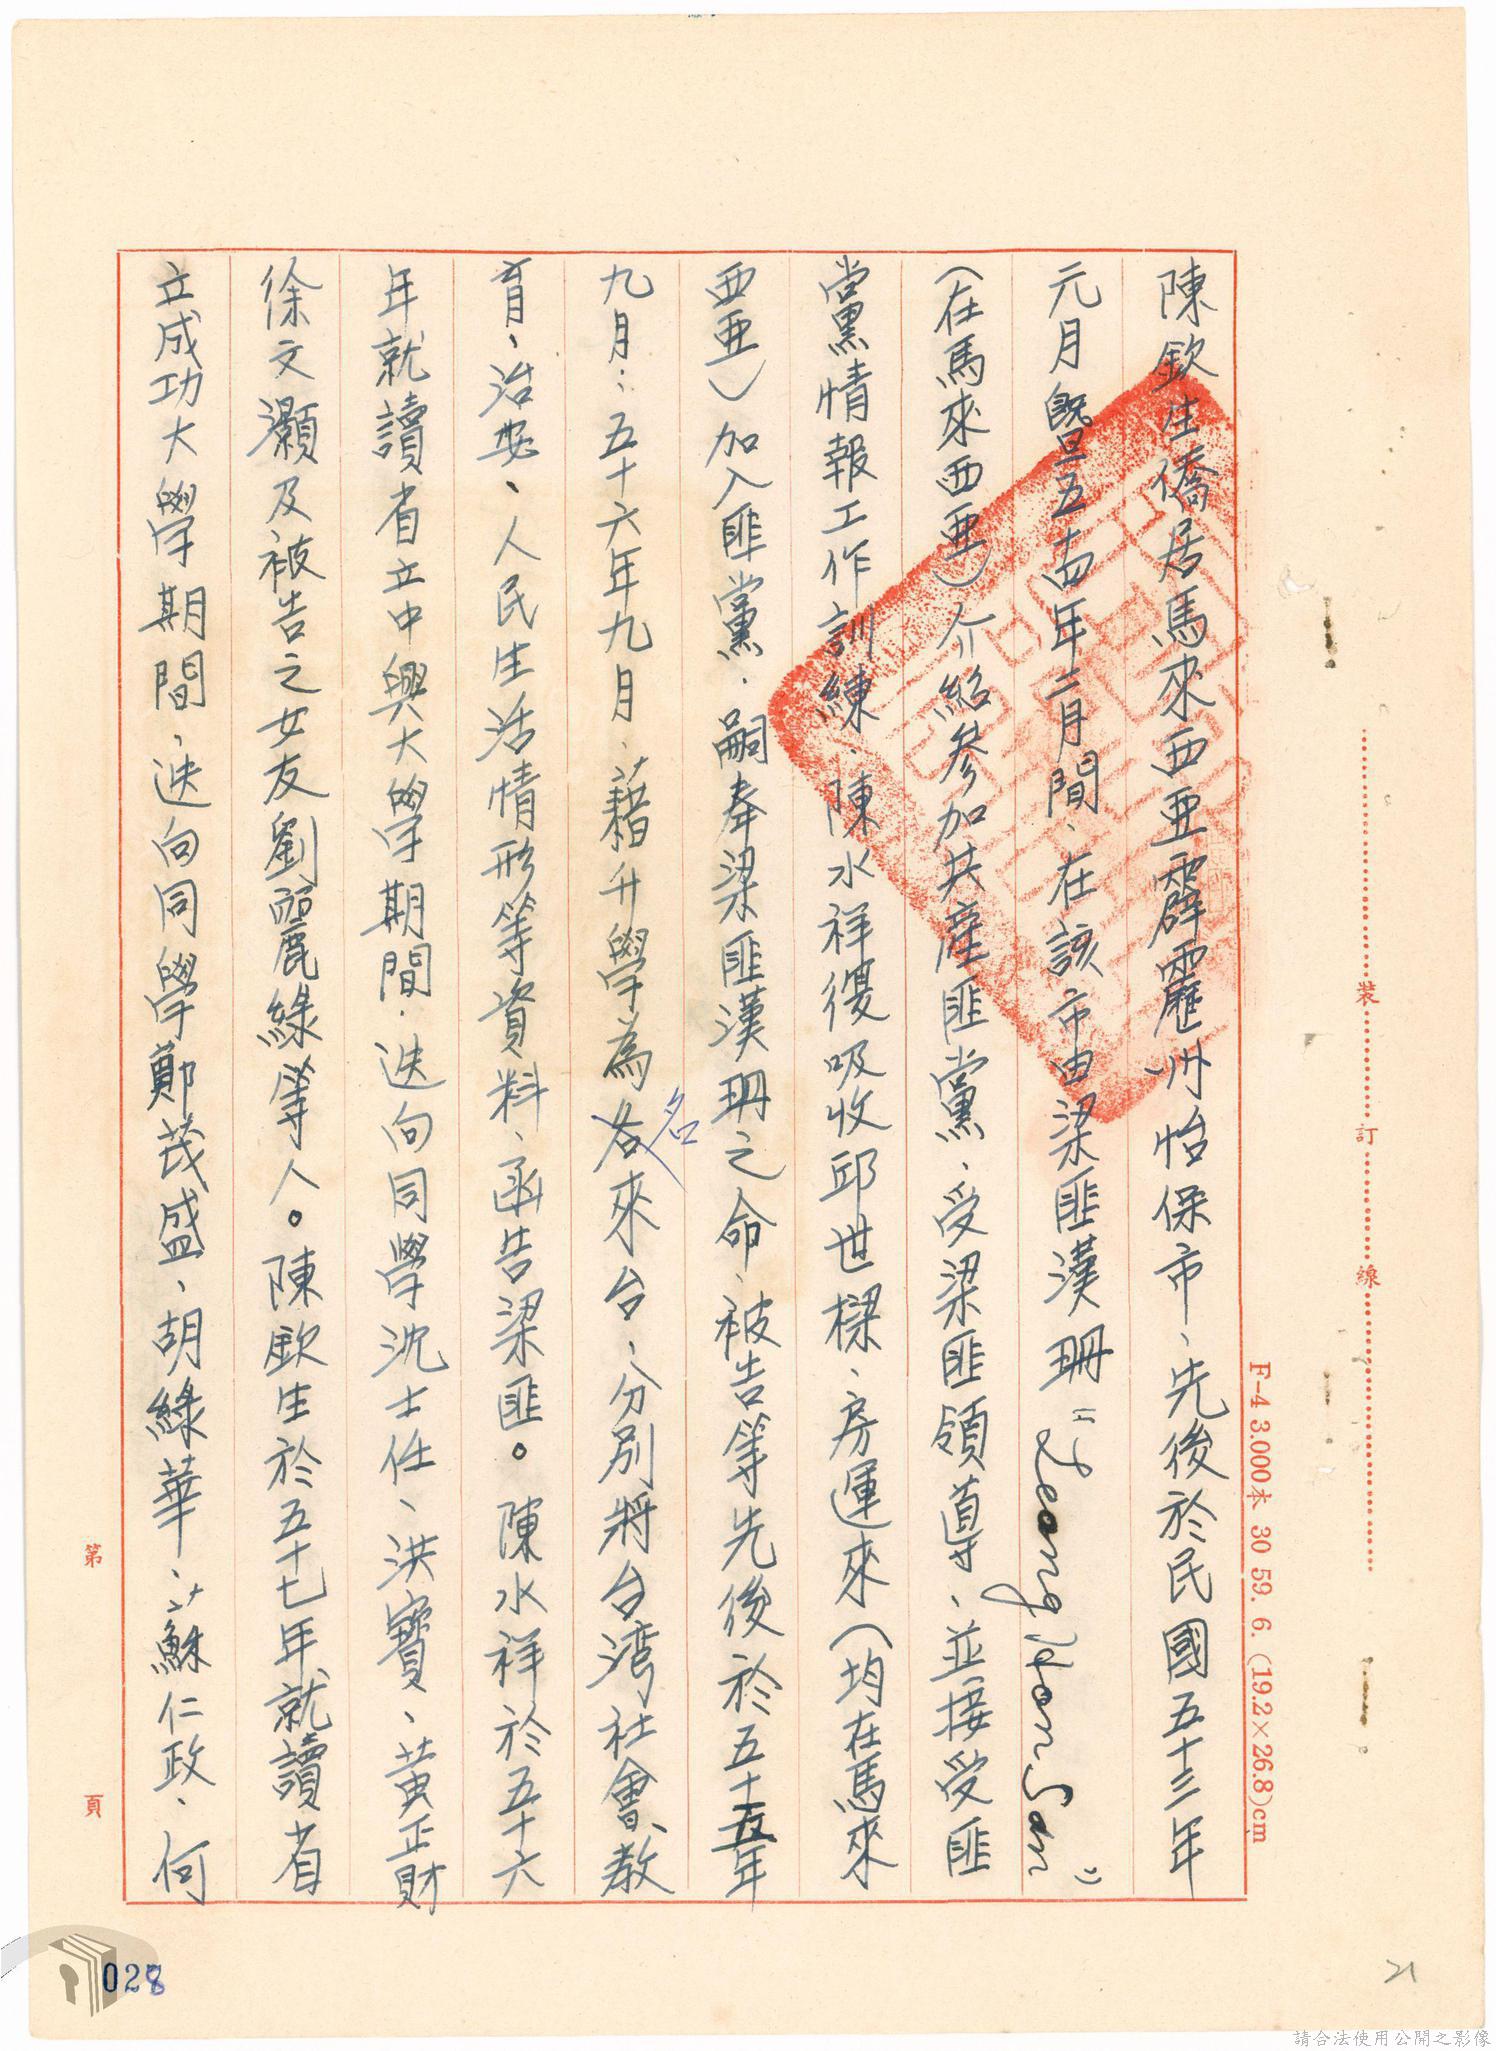 陳欽生僑居馬來西亞霹靂州怡保市、先後於民國五十三年
元月暨五十四年二月間、在該市由梁匪漢珊"Leong Hon San"
(在馬來西亞)介紹參加共產匪黨、受梁匪領導、並接受匪
黨情報工作訓練、陳水祥復吸收邱世樑、房運來(均在馬來
西亞)加入匪黨、嗣奉梁匪漢珊之命、被告等先後於五十五年
九月、五十六年九月、藉升學為名來台、分別將台湾社會、教
育、治安、人民生活情形等資料、函告梁匪。陳水祥於五十六
年就讀省立中興大學期間、迭向同學沈士任、洪寶、黃正財
徐文灝及被告之女友劉麗綠等人。陳欽生於五十七年就讀省
立成功大學期間、迭向同學鄭茂盛、胡綠華、蘇仁政、何
裝 訂 線
F-4 3.000本 30 59. 6. (19.2×26.8)cm
第 頁
028
21
請合法使用公開之影像